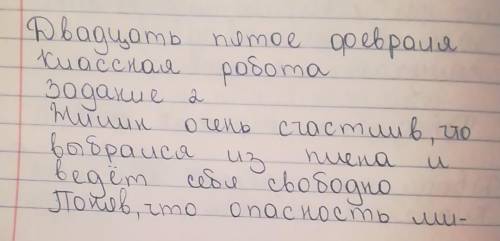 Двадцать пятое февраля
Классная робота
Задание 2
Жилин очень счастлив, что
выбрался из плена и
ведёт себя свободно
Поняв, что опасность ми-